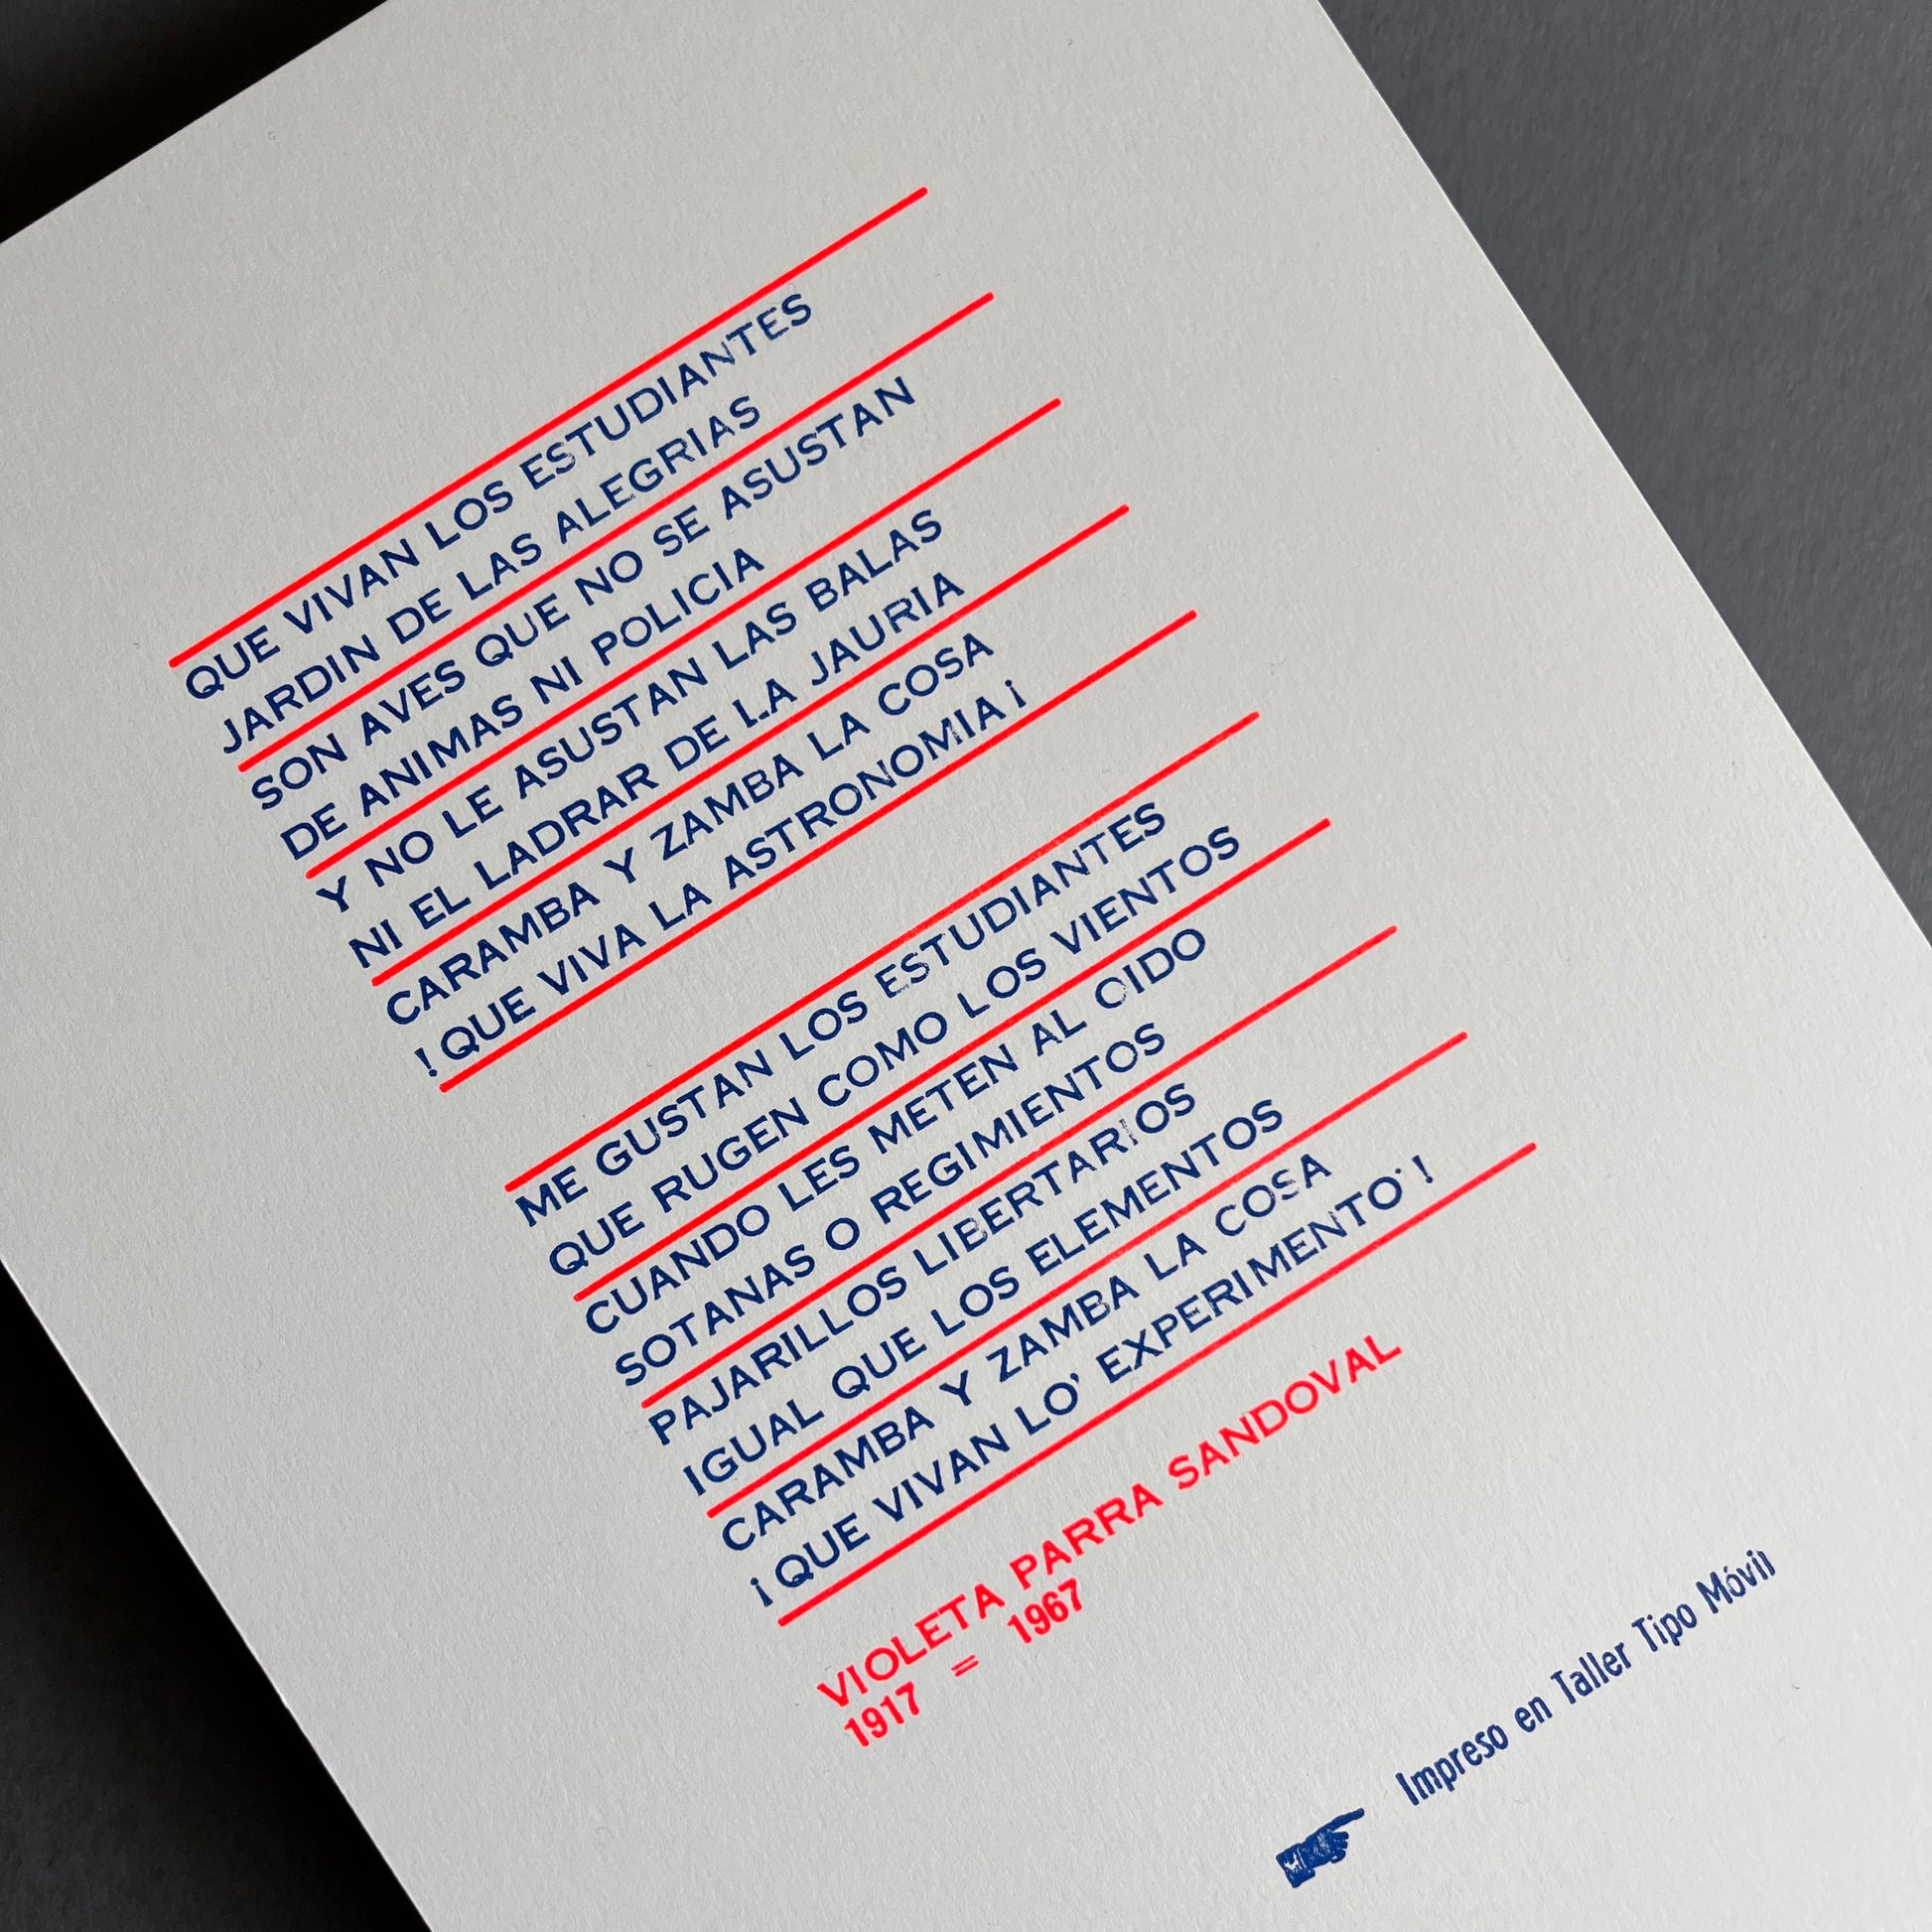 QUE VIVAN LOS ESTUDIANTES
JARDIN DE LAS ALEGRIAS
SON AVES QUE NO SE ASUSTAN
DE ANIMAS NI POLICIA
Y NO LE ASUSTAN LAS BALAS
NI EL LADRAR DE LA JAURIA
CARAMBA Y ZAMBA LA COSA
! QUE VIVA LA ASTRONOMIA ¡
ME GUSTAN LOS ESTUDIANTES
QUE RUGEN COMO LOS VIENTOS
CUANDO LES METEN AL OIDO
SOTANAS O REGIMIENTOS
PAJARILLOS LIBERTARIOS
IGUAL QUE LOS ELEMENTOS
CARAMBA Y ZAMBA LA COSA
¡ QUE VIVAN LO' EXPERIMENTO' !
VIOLETA PARRA SANDOVAL
1917 = 1967
Impreso en Taller Tipo Móvil